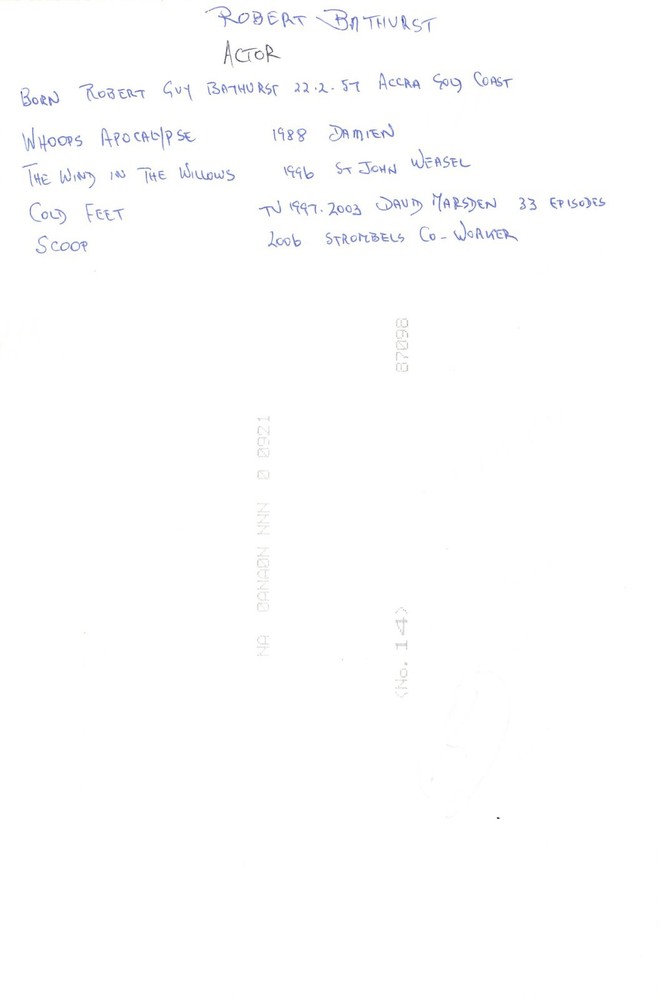 ROBERT BATHURST
ACTOR
BORN ROBERT GUY BATHURST 22.2.57 ACCRA GOLD COAST
WHOOPS APOCALYPSE 1988 DAMIEN
THE WIND IN THE WILLOWS 1996 ST JOHN WEASEL
COLD FEET TV 1997.2003 DAVID MARSDEN 33 EPISODES
SCOOP 2006 STROMBELS CO-WORKER
87098
NA 0ANA0N NNN 0 0921
<No. 14>